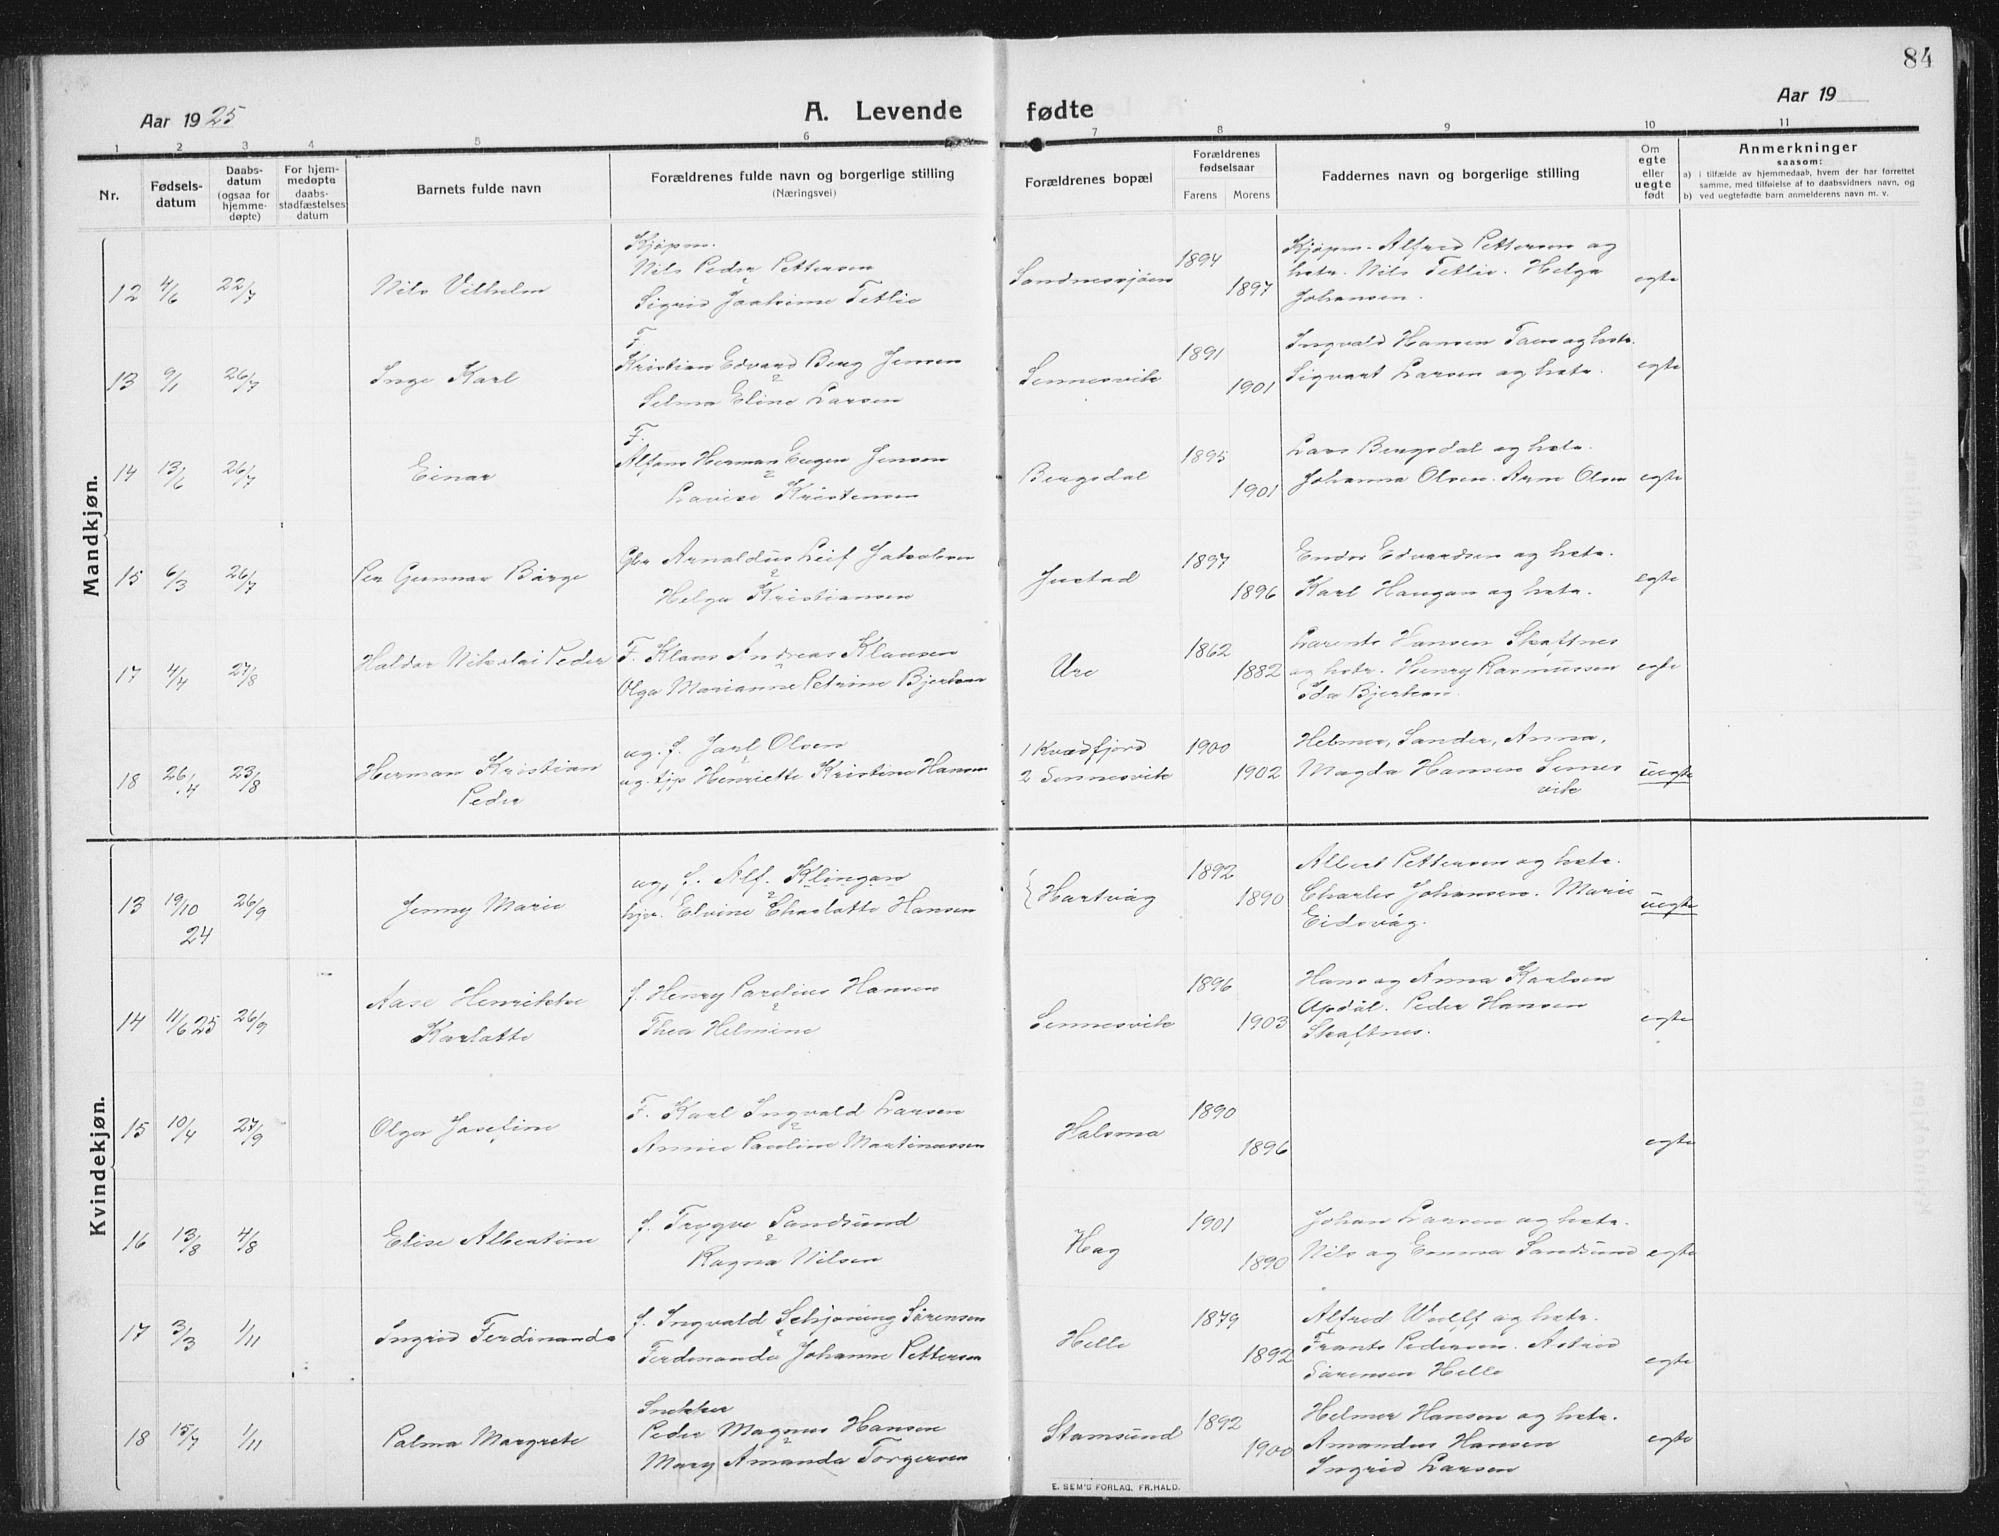 84
Aar 1925
A. Levende fødte
Aar 19
1 2 3 4 5 6 7 8 9 10 11
Nr.
Fødsels-
datum
Daabs-
datum
(ogsaa for
hjemme-
døpte)
For hjem-
medøpte
daabs-
stadfæstelses
datum
Barnets fulde navn
Forældrenes fulde navn og borgerlige stilling
(Næringsvei)
Forældrenes bopæl
Forældrenes
fødselsaar
Farens Morens
Faddernes navn og borgerlige stilling
Om
egte
eller
uegte
født
Anmerkninger
saasom:
a) i tilfælde av hjemmedaab, hvem der har forrettet
samme, med tilføielse af to daabsvidners navn, og
b) ved uegtefødte barn anmelderens navn m. v.
Mandkjøn.
12 4/6 22/7 Nils Vilhelm
Kjøpm.
Nils Peder Pettersen
2
Sigrid Joakime Tetlie
Sandnessjøen 1894 1897
Kjøpm. Alfred Pettersen og
hstr. Nils Tetlie. Helga
Johansen.
egte
13 9/1 26/7 Inge Karl
F.
Kristian Edvard Berg Jensen
2
Selma Eline Larsen
Sennesvik 1891 1901
Ingvald Hansen Taen og hstr.
Sigvart Larsen og hstr.
egte
14 13/6 26/7 Einar
F.
Alfons Herman Eugen Jensen
2
Lovise Kristensen
Bergsdal 1895 1901
Lars Bergsdal og hstr.
Johanna Olsen. Arne Olsen
egte
15 6/3 26/7 Per Gunnar Børge
Gbr Arnoldus Leif Jakobsen
2
Helga Kristiansen
Justad 1897 1896
Endor Edvardsen og hstr.
Karl Haugan og hstr.
egte
17 4/4 27/8 Haldor Nikolai Peder
F. Klaus Andreas Klausen
2
Olga Marianne Petrine Bjerkan
Ure 1862 1882
Larents Hansen Skaftnes
og hstr. Henry Rasmussen
Ida Bjerkan.
egte
18 26/4 23/8 Herman Kristian
Peder
ug. f. Jarl Olsen
2
ug. tjp Henriette Kristine Hansen
1 Kvædfjord
2 Sennesvik
1900 1902
Helmer, Sander, Anna,
Magda Hansen Sennes
vik
uegte
Kvindekjøn.
13 19/10 24 26/9 Jenny Marie
ug. f. Alf. Klingan
2
hjv. Elvine Charlotte Hansen
Hartvåg 1892 1890
Albert Pettersen og hstr.
Charles Johansen. Marie
Eidsvåg.
uegte
14 11/6 25 26/9 Aase Henrikke
Karlotte
f. Henry Parelius Hansen
2
Thea Helmine
Sennesvik 1896 1903
Hans og Anna Karlsen
Opdøl. Peder Hansen
Skaftnes.
egte
15 10/4 27/9 Olga Josefine
F. Karl Ingvald Larsen
2
Annie Pauline Martinussen
Halsma 1890 1896
egte
16 13/8 4/8 Elise Albertine
f. Trygve Sandsund
2
Ragna Nilsen
Hag 1901 1890
Johan Larsen og hstr.
Nils og Emma Sandsund
egte
17 3/3 1/11 Ingrid Ferdinanda
f. Ingvald Schjøning Sørensen
2
Ferdinanda Johanne Pettersen
Helle 1879 1892
Alfred Wulff og hstr.
Frants Pedersen. Astrid
Sørensen Helle
egte
18 15/7 1/11 Palma Margrete
Snekker
Peder Magnus Hansen
2
Mary Amanda Torgersen
Stamsund 1892 1900
Helmer Hansen og hstr.
Amandus Hansen
Ingrid Larsen
egte
E. SEM'S FORLAG, FR.HALD.